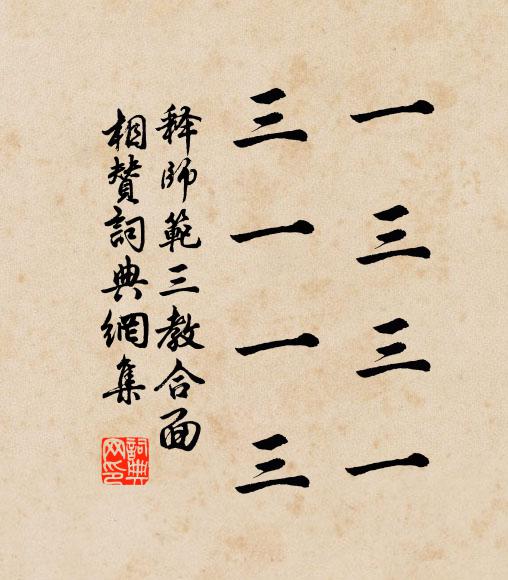 一三三一
三一一三
释師範三教合面
相贊詞典網集
詞典网印